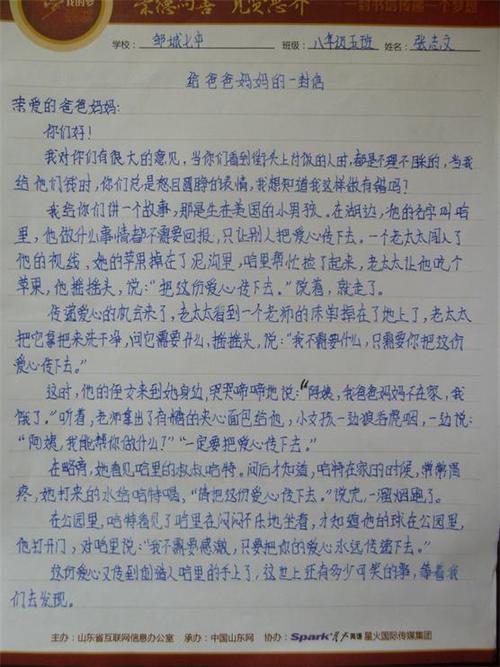 崇德向善 见贤思齐
一封书信传递一个梦想
学校: 邹城七中 班级: 八年级五班 姓名: 张志文
给爸爸妈妈的一封信
亲爱的爸爸妈妈:
你们好!
我对你们有很大的意见,当你们看到街头上讨饭的人时,都是不理不睬的,当我
给他们钱时,你们总是怒目圆睁的表情,我想知道我这样做有错吗?
我给你们讲一个故事,那是生在美国的小男孩。在湖边,他的名字叫哈
里,他做什么事情都不需要回报,只让别人把爱心传下去。一个老太太闯入了
他的视线,她的苹果掉在了泥沟里,哈里帮忙捡了起来,老太太让他吃个
苹果,他摇摇头,说:“把这份爱心传下去。”说着,就走了。
传递爱心的机会来了,老太太看到一个老师的床单掉在了地上了,老太太
把它拿起来洗干净,问它需要什么,摇摇头,说:“我不需要什么,只需要你把这份
爱心传下去。”
这时,他的侄女来到她身边,哭哭啼啼地说:“阿姨,我爸爸妈妈不在家,我
饿了。”听着,老师拿出了有糖的夹心面包给他,小女孩一边狼吞虎咽,一边说:
“阿姨,我能帮你做什么?”“一定要把爱心传下去。”
在路旁,她看见哈里的叔叔哈特。问后才知道,哈特在家的时候,常常胃
疼,她打来的水给哈特喝,“请把这份爱心传下去。”说完,一溜烟跑了。
在公园里,哈特看见了哈里在闷闷不乐地坐着,才知道他的球在公园里,
他打开门,对哈里说:“我不需要感激,只要把你的爱心永远传递下去。”
这份爱心又传到创造人哈里的手上了,这世上还有多少可笑的事,等着我
们去发现。
主办:山东省互联网信息办公室 承办:中国山东网 协办:Spark 星火英语 星火国际传媒集团